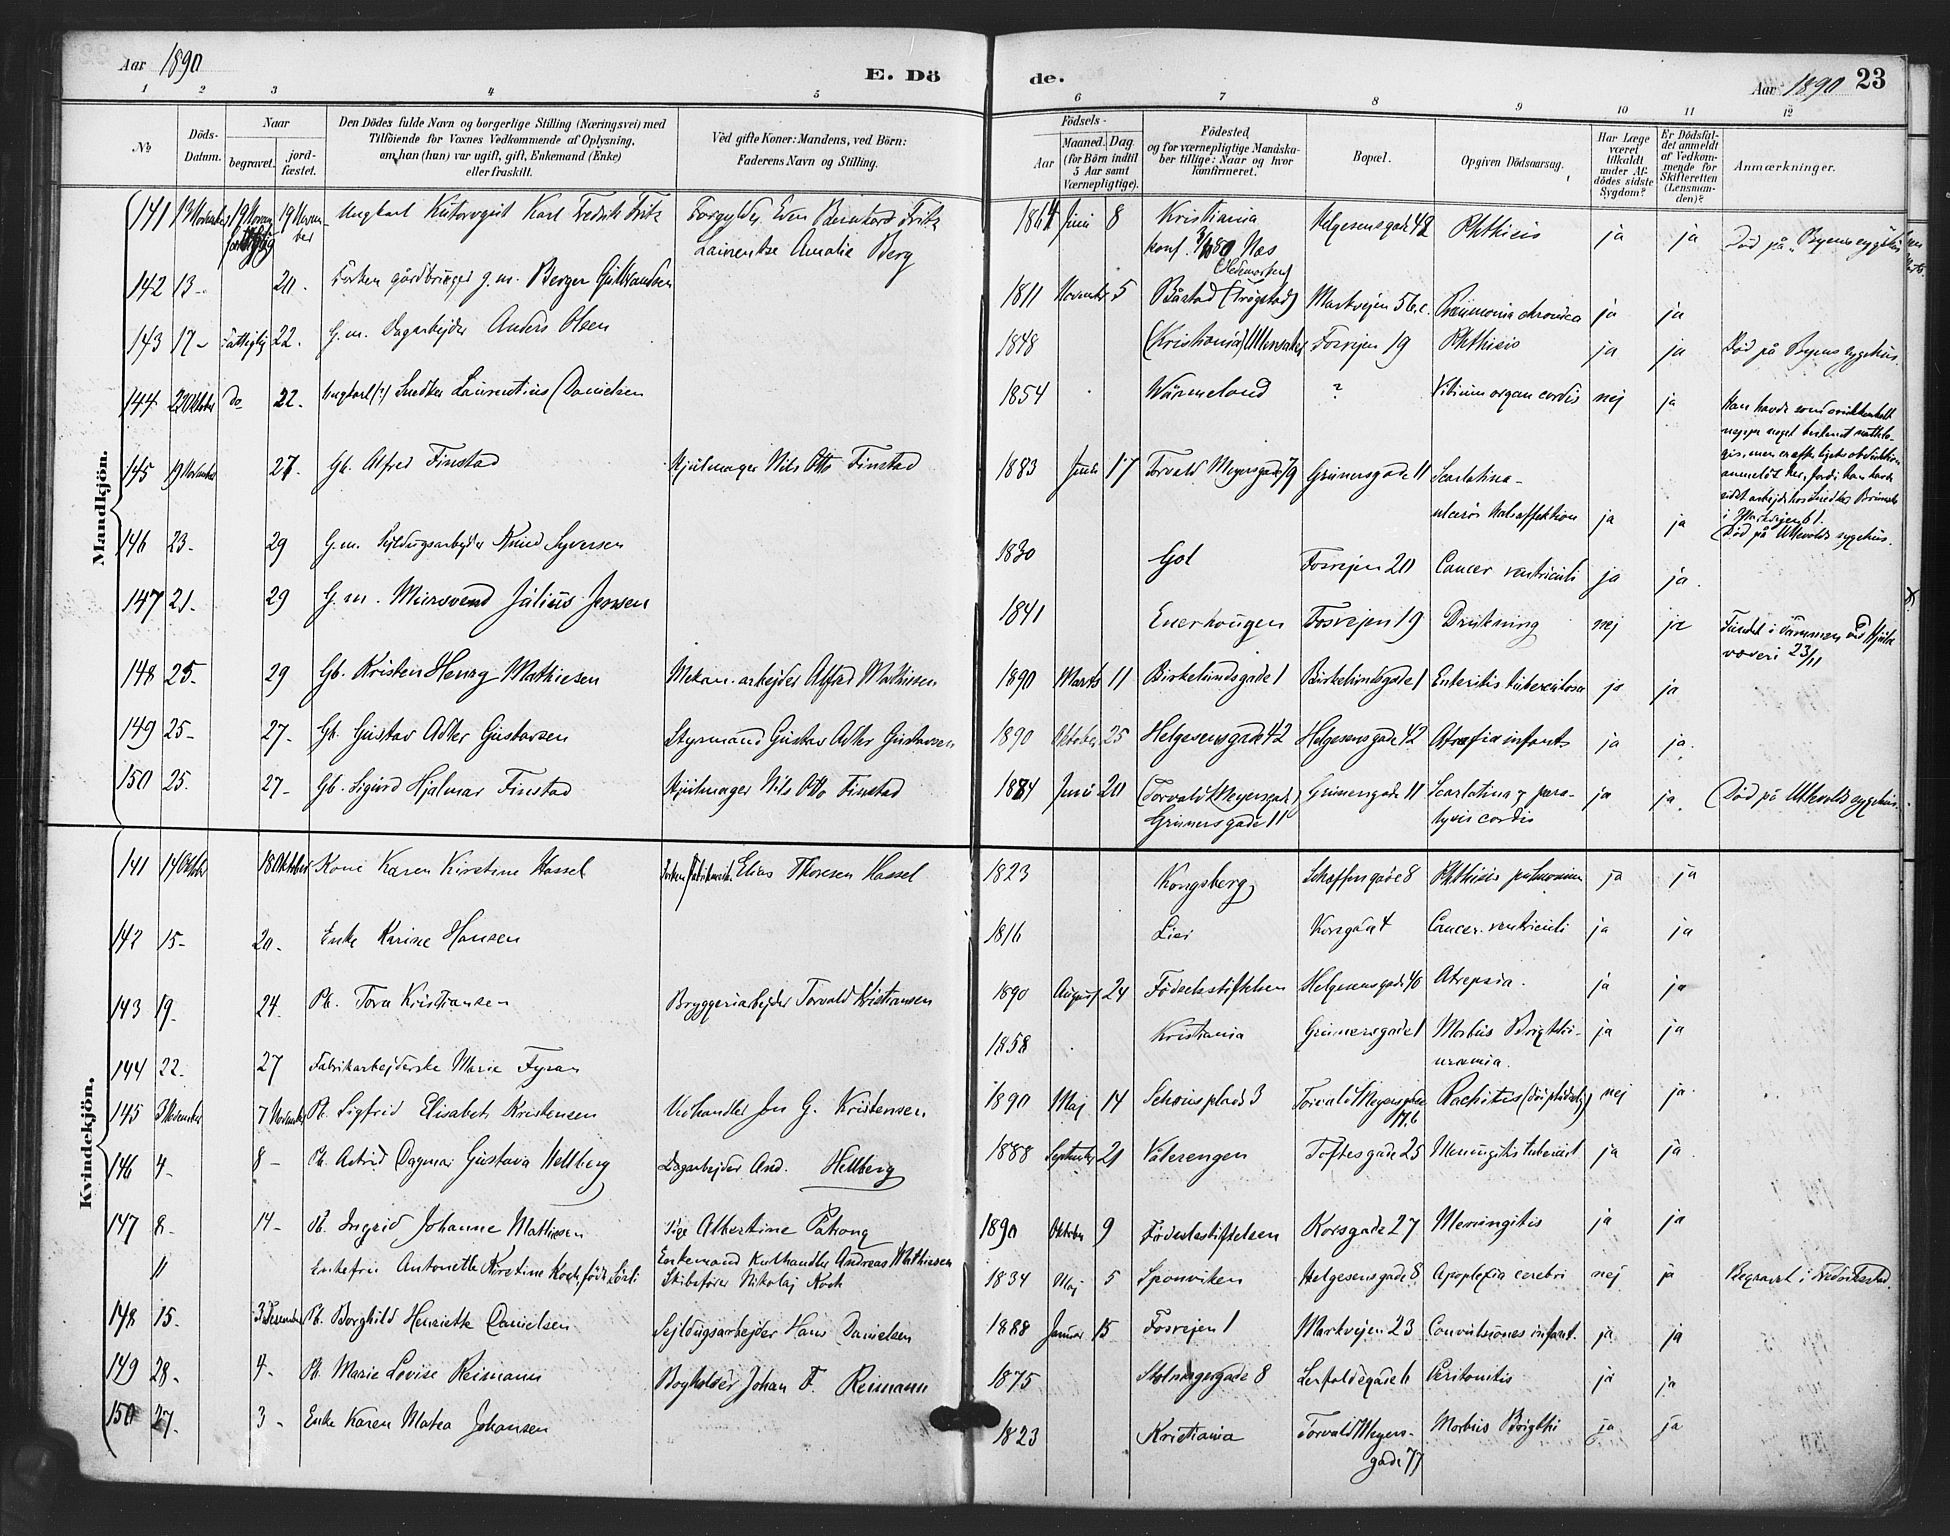 Aar 1890
E. Dö
de.
Aar 1890 23
1 2 3 4 5 6 7 8 9 10 11 12
№
Döds-Datum.
Naar
begravet.
jord-fæstet.
Den Dödes fulde Navn og borgerlige Stilling (Næringsvei) med
Tilföiende for Voxnes Vedkommende af Oplysning,
om han (hun) var ugift, gift, Enkemand (Enke)
eller fraskilt.
Ved gifte Koner: Mandens, ved Börn:
Faderens Navn og Stilling.
Födsels-
Aar
Maaned. Dag
(for Börn indtil
5 Aar samt
Værnepligtige).
Födested
og for værnepligtige Mandska-
ber tillige: Naar og hvor
konfirmeret.
Bopæl.
Opgiven Dödsaarsag.
Har Læge
været
tilkaldt
under Af-
dödes sidste
Sygdom?
Er Dödsfal-
det anmeldt
af Vedkom-
mende for
Skifteretten
(Lensman-
den)?
Anmærkninger.
Mandkjön.
141 13 November 19 November 19 November Ungkarl Karl Fredrik Fritz Forgylder Even Bernhard Fritz 1864 Juni 8 Kristiania Helgesensgade 42 Phthisis ja ja Död på Byens sygehus
Laurentze Amalie Berg konf. Nas
142 13- 20. g.m. Berger Gulbrandsen 1811 November 5 Båstad (Trögstad) Markvejen 56 c. Pneumonia chronica ja ja
143 17- fattiglig 22. G. m. Dagarbejder Anders Olsen 1848 (Kristiania) Ullensaker Fosvejen 19 Phthisis ja ja Död på Byens sygehus.
144 Oktober Do 22. Ungkarl (?) Snedker Laurentius Danielsen 1854 Wärmeland ? Vitium organ cordis nej ja Han havde
145 19 November 27. Gb. Alfred Finstad Hjulmager Nils Otto Finstad 1883 Juni 17 Torvald Meyersgade 79 Grünersgade 11 Scarlatina-
ulcerös Halsaffektion ja ja Död på Ullevolds sygehus.
146 23- 29 G.m. Sejldugsarbejder Knud Syversen 1830 Gol Fosvejen 20 Cancer ventriculi ja ja.
147 21- 29 G. m. Mursvend Julius Jensen 1841 Enerhougen Fosvejen 19 Drukning nej ja Fundet i
væveri 23/11
148 25. 29 Gb. Kristen Henry Mathiesen Mekan. arbejder Alfred Mathiesen 1890 Marts 11 Birkelundsgade 1 Birkelundsgade 1 Enteritis tuberculosa ja ja
149 25- 27- Gb. Gustav Adler Gustavsen Styrmand Gustav Adler Gustavsen 1890 Oktober 25 Helgesensgade 42 Helgesensgade 42 Atrofia infants ja ja.
150 25. 27- Gb. Sigurd Hjalmar Finstad Hjulmager Nils Otto Finstad 1884 Juni 20 (Torvald Meyersgade) Grünersgade 11 Scarlatina & para- ja ja. Död på Ullevolds sygehus.
Grünersgade 11 lysis cordis
Kvindekjön.
141 14 Oktober 18 Oktober Kone Karen Kirstine Hassel Elias Thoresen Hassel 1823 Kongsberg Schaffersgade 8 Phthisis pulmonum ja ja
142 15- 20. Enke Karine Hansen 1816 Lier Korsgade 4 Cancer ventriculi ja ja
143 19. 24. Pb. Tora Kristiansen Bryggeriarbejder Torvald Kristiansen 1890 August 24 Födselsstiftelsen Helgesensgade 40 Atrepsia. ja ja
144 22- 27 Fabrikarbejderske Marie Fyran 1858 Kristiania Grünersgade 1 Morbus Brigthi- ja ja
uræmia.
145 3 November 7 November Pb. Sigfrid Elisabeth Kristensen Vedhandler Jon G. Kristensen 1890 Maj 14 Schousplads 3 Torvald Meyersgade Rachitis nej ja
146 4- 8- Pb. Astrid Dagmar Gustava Hellberg Dagarbejder And. Hellberg 1888 September 21 Valerengen Toftesgade 25 Meningitis tubercul ja ja.
147 8- 14- Pb. Ingrid Johanne Mathiesen Pige Albertine 1890 Oktober 9 Födselsstiftelsen Korsgade 27 Meningitis ja ja
Enkemand Kulhandler Andreas Mathiesen
11 Enkefru Antonette Kirstine Koch Skibsförer Nikolaj Koch 1834 Maj 5 Sponviken Helgesensgade 8 Apoplexia cerebri nej ja Begravet i Fredrikstad.
148 15. 3 December Pb. Borghild Henriette Danielsen Sejldugsarbejder Hans Danielsen 1888 Januar 15 Fosvejen 1 Markvejen 23 Convulsiones infant. ja ja
149 28- 4- Pb. Marie Lovise Reimann Bogholder Johan F. Reimann 1875 8 Peritonitis ja ja
150 27. 3- Enke Karen Matea Johansen 1823 Kristiania Torvald Meyers- Morbus Brigthi ja ja
gade 77